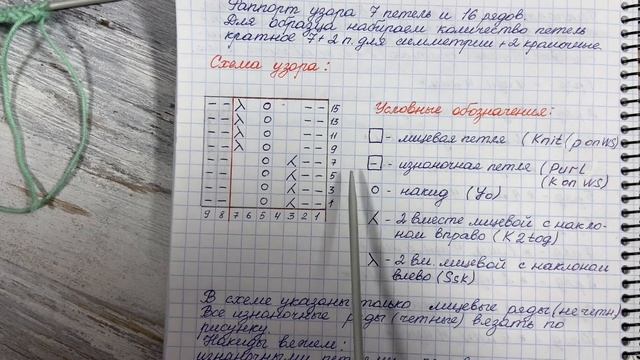 Раппорт узора 7 петель и 16 рядов.
Для образца набираем количество петель
кратное 7 + 2 п. для симметрии + 2 кромочные.
Схема узора:
Условные обозначения:
- - λ o - - 15
- - λ o - - 13
- - λ o - - 11
- - λ o - - 9
- - o - - 7
- - o - - 5
- - o - - 3
- - o - - 1
9 8 7 6 5 4 3 2 1
- лицевая петля (Knit/p on WS)
- - изнаночная петля (purl
(k on WS)
o - накид (yo)
- 2 вместе лицевой с накло-
ном вправо (K2tog)
λ - 2 вм. лицевой с наклоном
влево (Ssk)
В схеме указаны только лицевые ряды (нечетн)
Все изнаночные ряды (четные) вязать по
рисунку.
Накиды вяжем:
изнаночными